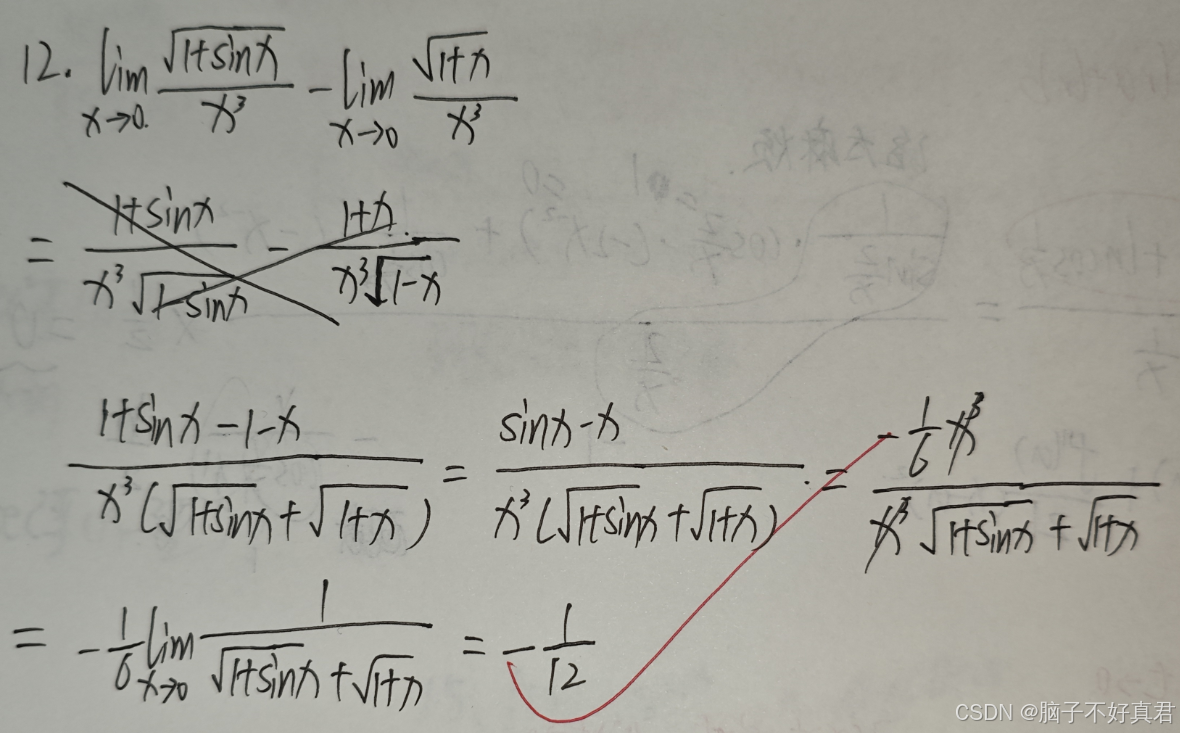 12. lim x→0. √(1+sinx) / x³ - lim x→0 √(1+x) / x³
= (1+sinx) / (x³ √(1-sinx)) - (1+x) / (x³ √(1-x))
(1+sinx-1-x) / (x³ (√(1+sinx) + √(1+x))) = (sinx-x) / (x³ (√(1+sinx) + √(1+x))) = (-1/6 x³) / (x³ √(1+sinx) + √(1+x))
= -1/6 lim x→0 1 / (√(1+sinx) + √(1+x)) = -1/12
CSDN @脑子不好真君